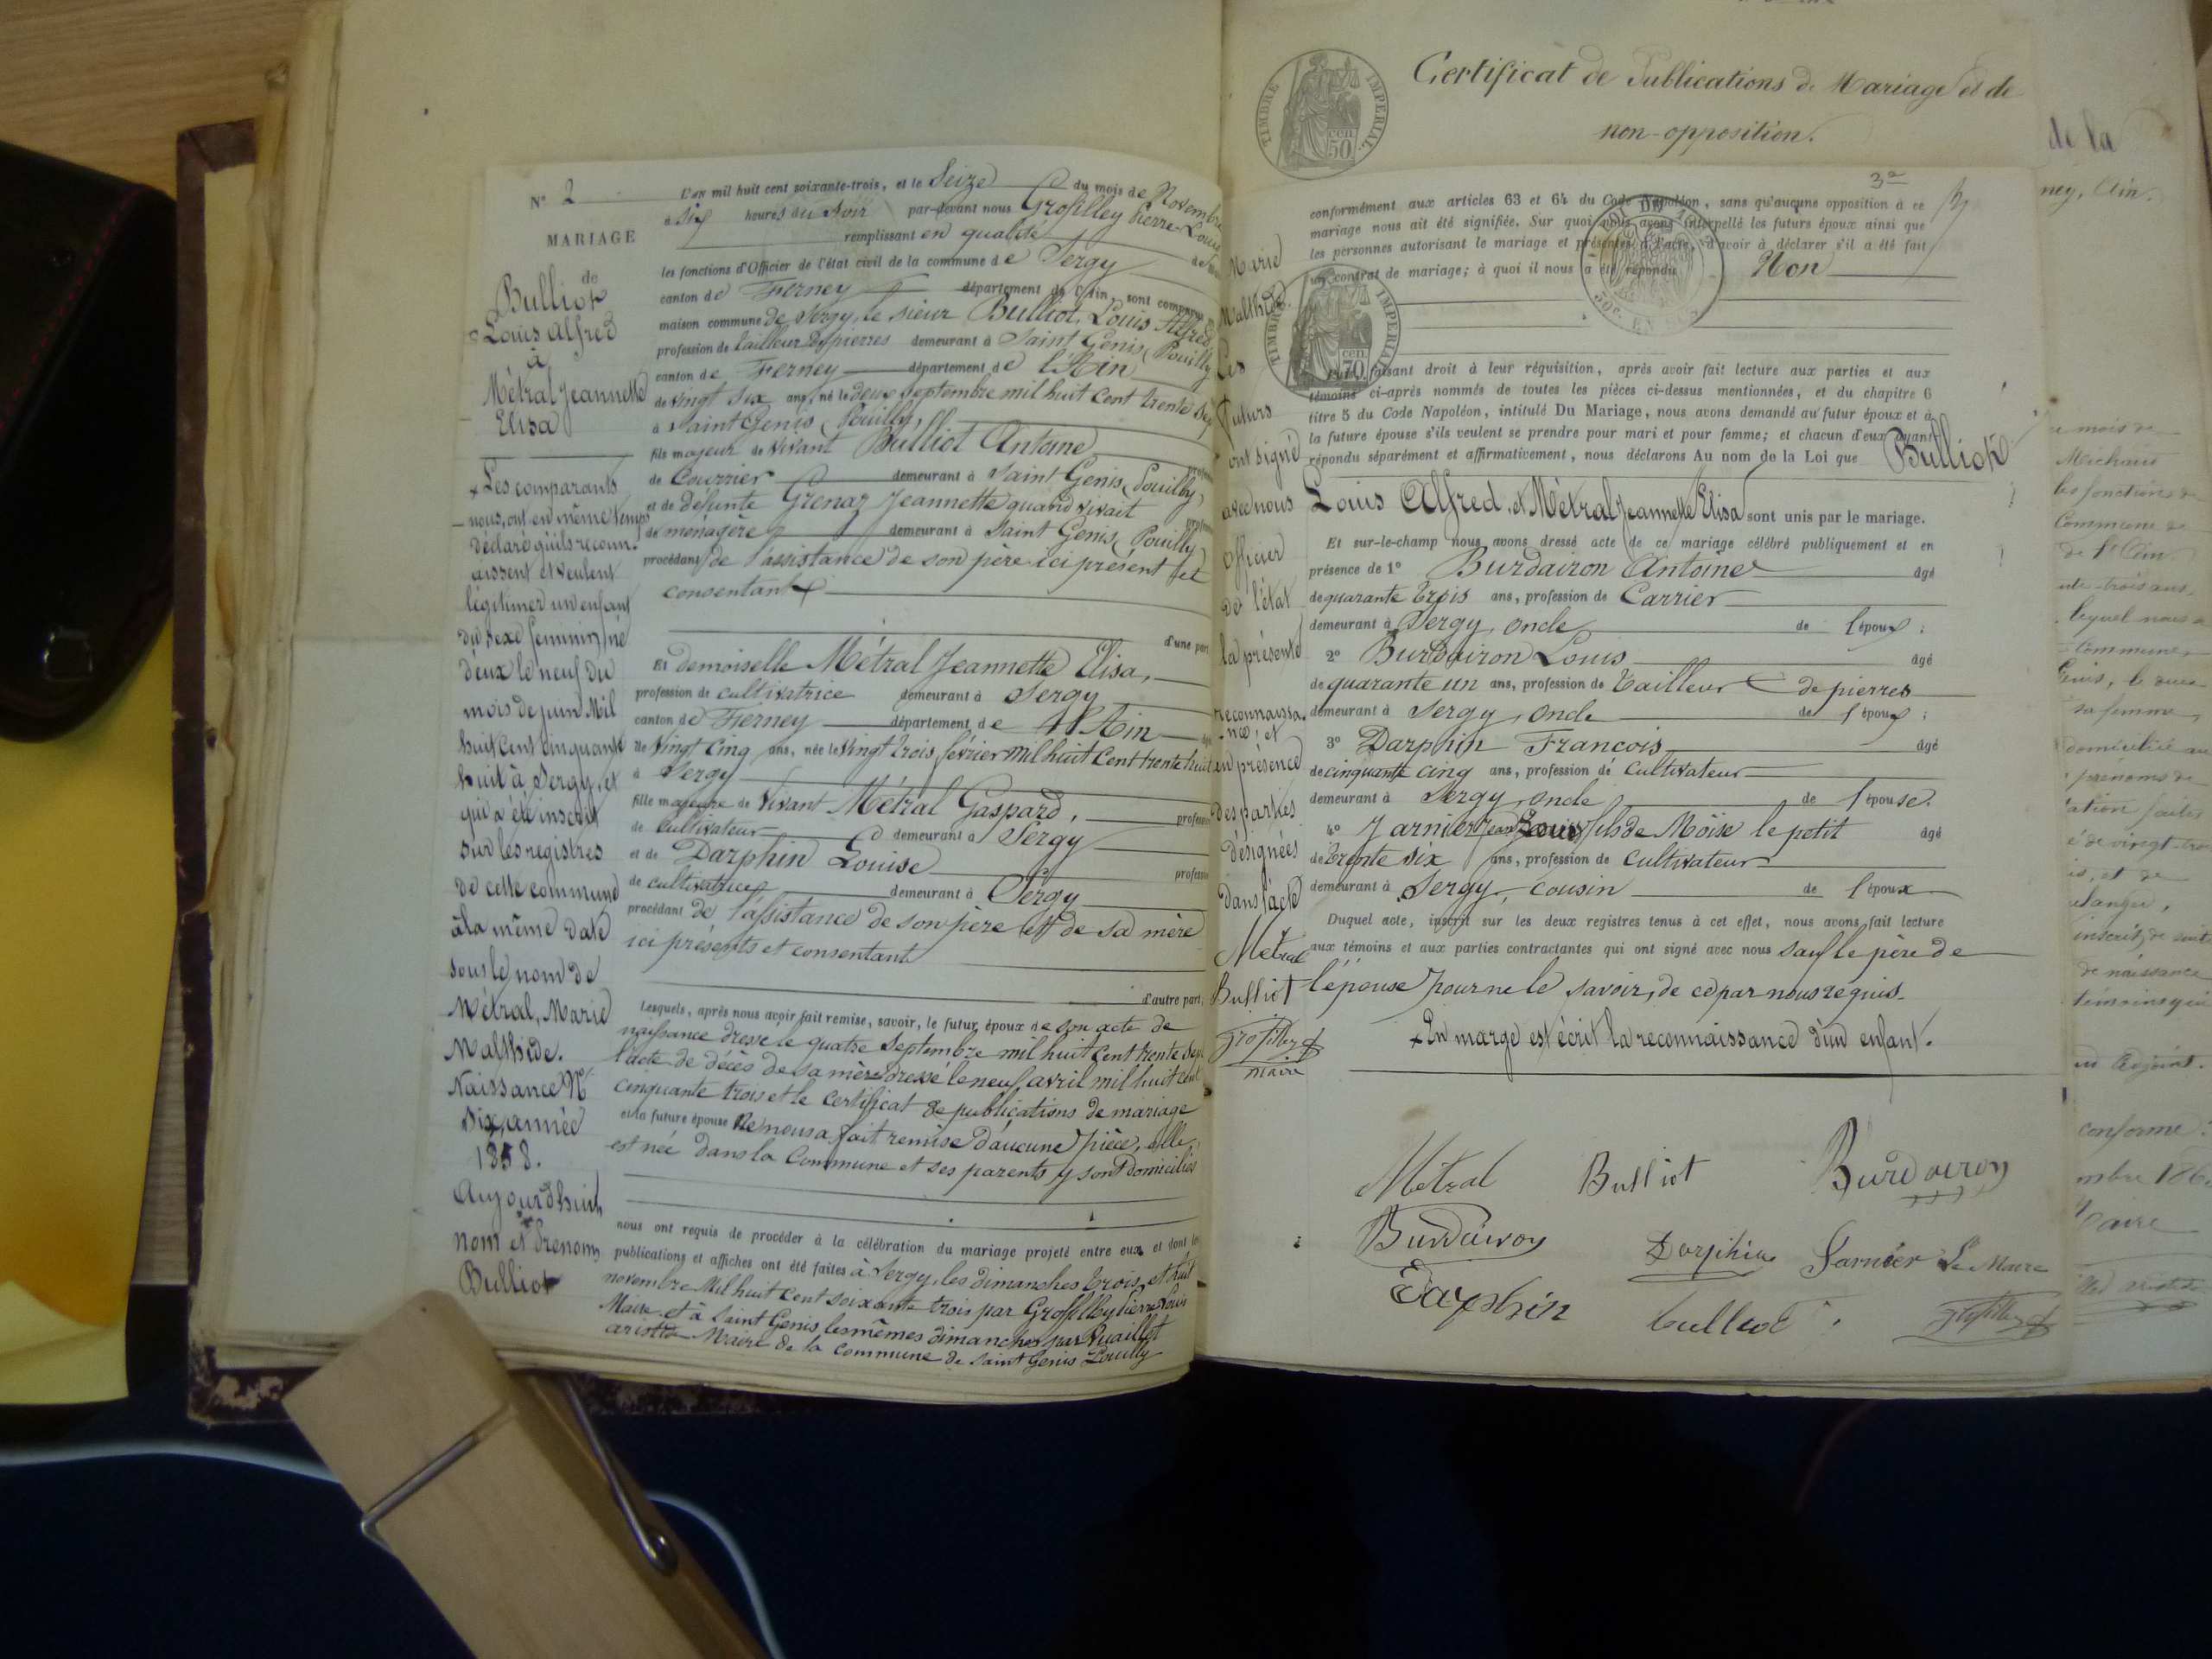 N° 2
MARIAGE
de
Bulliot
Louis Alfred
à
Métral Jeannette
Elisa
Les comparants
nous, ont en même temps
déclaré qu'ils reconn-
aissent et veulent
légitimer un enfant
du sexe feminin, né
d'eux le neuf du
mois de juin Mil
huit cent cinquante
huit à Sergy, et
qui a été inscrit
sur les registres
de cette commune
à la même date
sous le nom de
Métral, Marie
Malthide.
Naissance N°
Six, année
1858.
Aujourd'hui,
nom et Prenoms
Bulliot
L'an mil huit cent soixante-trois, et le Seize du mois de Novembre
à six heures du soir par-devant nous Grosilley Pierre-Louis
remplissant en qualité de
les fonctions d'Officier de l'état civil de la commune de Sergy
canton de Ferney département de l'Ain, sont comparus
maison commune de Sergy, le sieur Bulliot, Louis Alfred
profession de tailleur de pierres demeurant à Saint Genis, Pouilly
canton de Ferney département de l'Ain
de vingt six ans, né le deux septembre mil huit cent trente sept
à Saint Genis, Pouilly,
fils majeur de vivant Bulliot Antoine
de Courrier demeurant à Saint Genis, Pouilly,
et de défunte Grenaz Jeannette quand vivait
de ménagère demeurant à Saint Genis, Pouilly
procédant de l'assistance de son père ici présent et
consentant
d'une part
Et demoiselle Métral Jeannette Elisa,
profession de cultivatrice demeurant à Sergy
canton de Ferney département de l'Ain
de vingt cinq ans, née le vingt trois février mil huit cent trente huit
à Sergy
fille majeure de vivant Métral Gaspard,
de cultivateur demeurant à Sergy
et de Darphin Louise
de cultivatrice demeurant à Sergy
procédant de l'assistance de son père et de sa mère
ici présents et consentant
d'autre part;
Lesquels, après nous avoir fait remise, savoir, le futur époux de son acte de
naissance dressé le quatre septembre mil huit cent trente sept
l'acte de décès de sa mère dressé le neuf avril mil huit cent
cinquante trois et le certificat de publications de mariage
et la future épouse Ne nous a fait remise d'aucune pièce, elle
est née dans la Commune et ses parents y sont domiciliés
nous ont requis de procéder à la célébration du mariage projeté entre eux et dont les
publications et affiches ont été faites à Sergy, les dimanches trois et huit
novembre Mil huit cent soixante trois par Grosilley Pierre Louis
Maire et à Saint Genis les mêmes dimanches par Ruaillet
Maire de la commune de Saint Genis Pouilly
Certificat de Publications de Mariage et de
non-opposition.
TIMBRE IMPERIAL
50 cen
TIMBRE IMPERIAL
70 cen
50c. EN SUS
3e
conformément aux articles 63 et 64 du Code Napoléon, sans qu'aucune opposition à ce
mariage nous ait été signifiée. Sur quoi nous avons interpellé les futurs époux ainsi que
les personnes autorisant le mariage et présentes à l'acte, d'avoir à déclarer s'il a été fait
un contrat de mariage; à quoi il nous a été répondu Non
faisant droit à leur réquisition, après avoir fait lecture aux parties et aux
témoins ci-après nommés de toutes les pièces ci-dessus mentionnées, et du chapitre 6
titre 5 du Code Napoléon, intitulé Du Mariage, nous avons demandé au futur époux et à
la future épouse s'ils veulent se prendre pour mari et pour femme; et chacun d'eux ayant
répondu séparément et affirmativement, nous déclarons Au nom de la Loi que Bulliot
Louis Alfred, et Métral Jeannette Elisa sont unis par le mariage.
Et sur-le-champ nous avons dressé acte de ce mariage célébré publiquement et en
présence de 1° Burdairon Antoine âgé
de quarante trois ans, profession de Carrier
demeurant à Sergy, oncle de l'époux;
2° Burdairon Louis âgé
de quarante un ans, profession de tailleur de pierres
demeurant à Sergy, oncle de l'époux;
3° Darphin Francois âgé
de cinquante cinq ans, profession de cultivateur
demeurant à Sergy, oncle de l'épouse.
4° Jarnier Jean Louis fils de Moïse le petit âgé
de trente six ans, profession de cultivateur
demeurant à Sergy, cousin de l'époux
Duquel acte, inscrit sur les deux registres tenus à cet effet, nous avons fait lecture
aux témoins et aux parties contractantes qui ont signé avec nous sauf le père de
l'épouse pour ne le savoir, de ce par nous requis.
En marge est écrit la reconnaissance d'un enfant.
Marie
Malthide.
Les
futurs
ont signé
avec nous
officier
de l'état
la présente
reconnaissa-
nce, et
en présence
des parties
désignées
dans l'acte
Métral
Bulliot
Grosilley
maire
Métral Bulliot Burdairon
Burdairon Darphin Garnier Le Maire
Darphin bulliot Grosilley
de la
ney, Ain.
mois de
Michaud
les fonctions de
Commune de
de l'Ain
lequel nous a
Commune,
Genis, le
sa femme,
domicilié au
prénoms de
ation faite
é de vingt-trois
is, et de
inscrit, de suite
de naissance
témoins qui
un adjoint.
conforme:
mbre 186
Maire